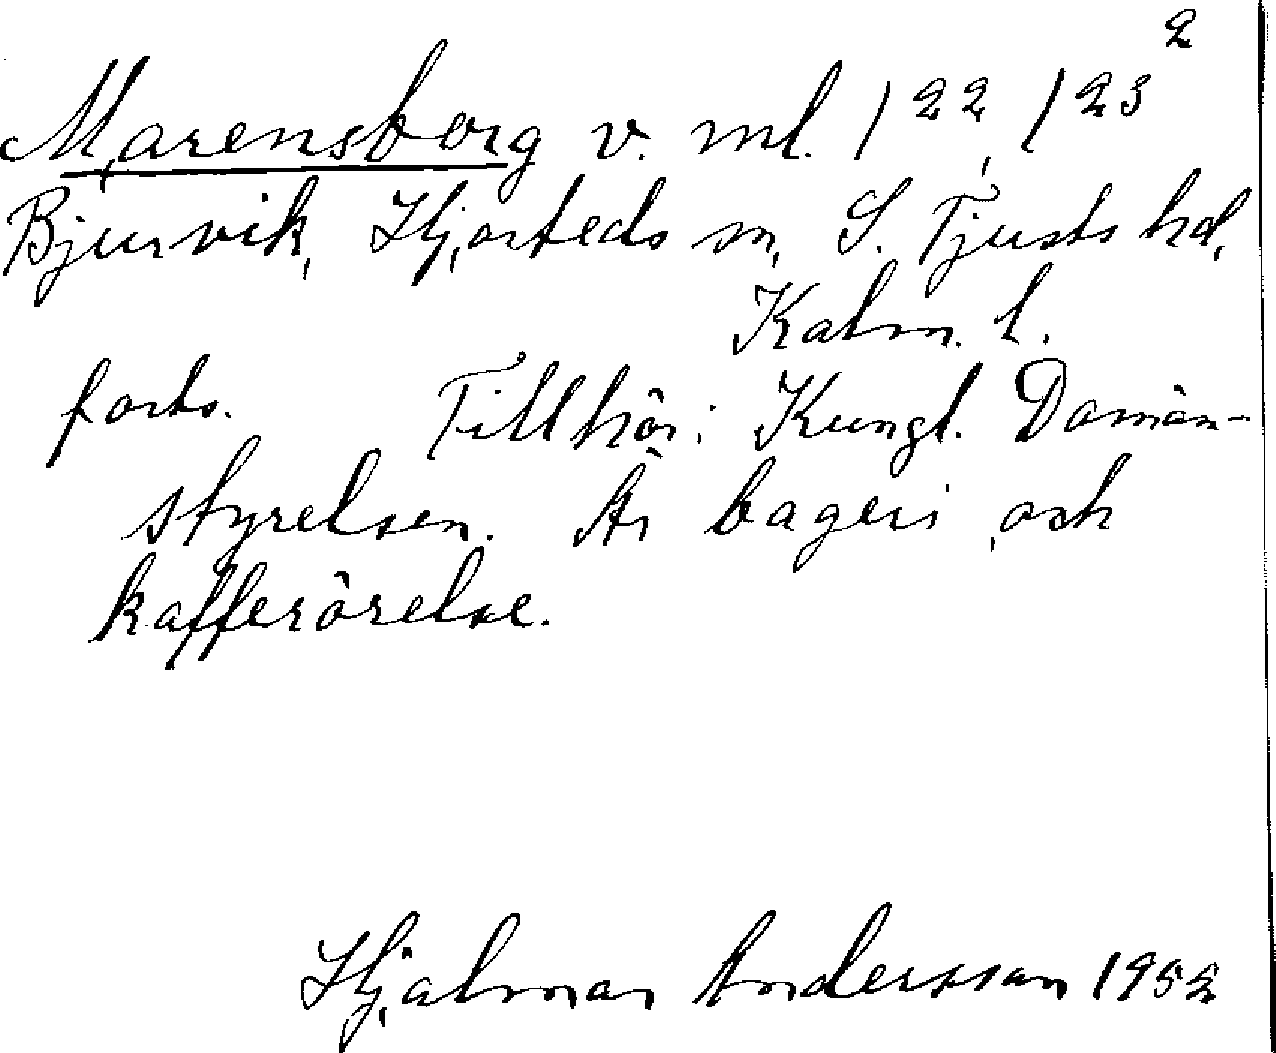 2
Marensborg v. ml. /22, /23
Bjurvik, Hjorteds sn, S. Tjusts hd,
Kalm. l.
forts. Tillhör: Kungl. Domän-
styrelsen. Är bageri och
kafferörelse.
Hjalmar Andersson 1952